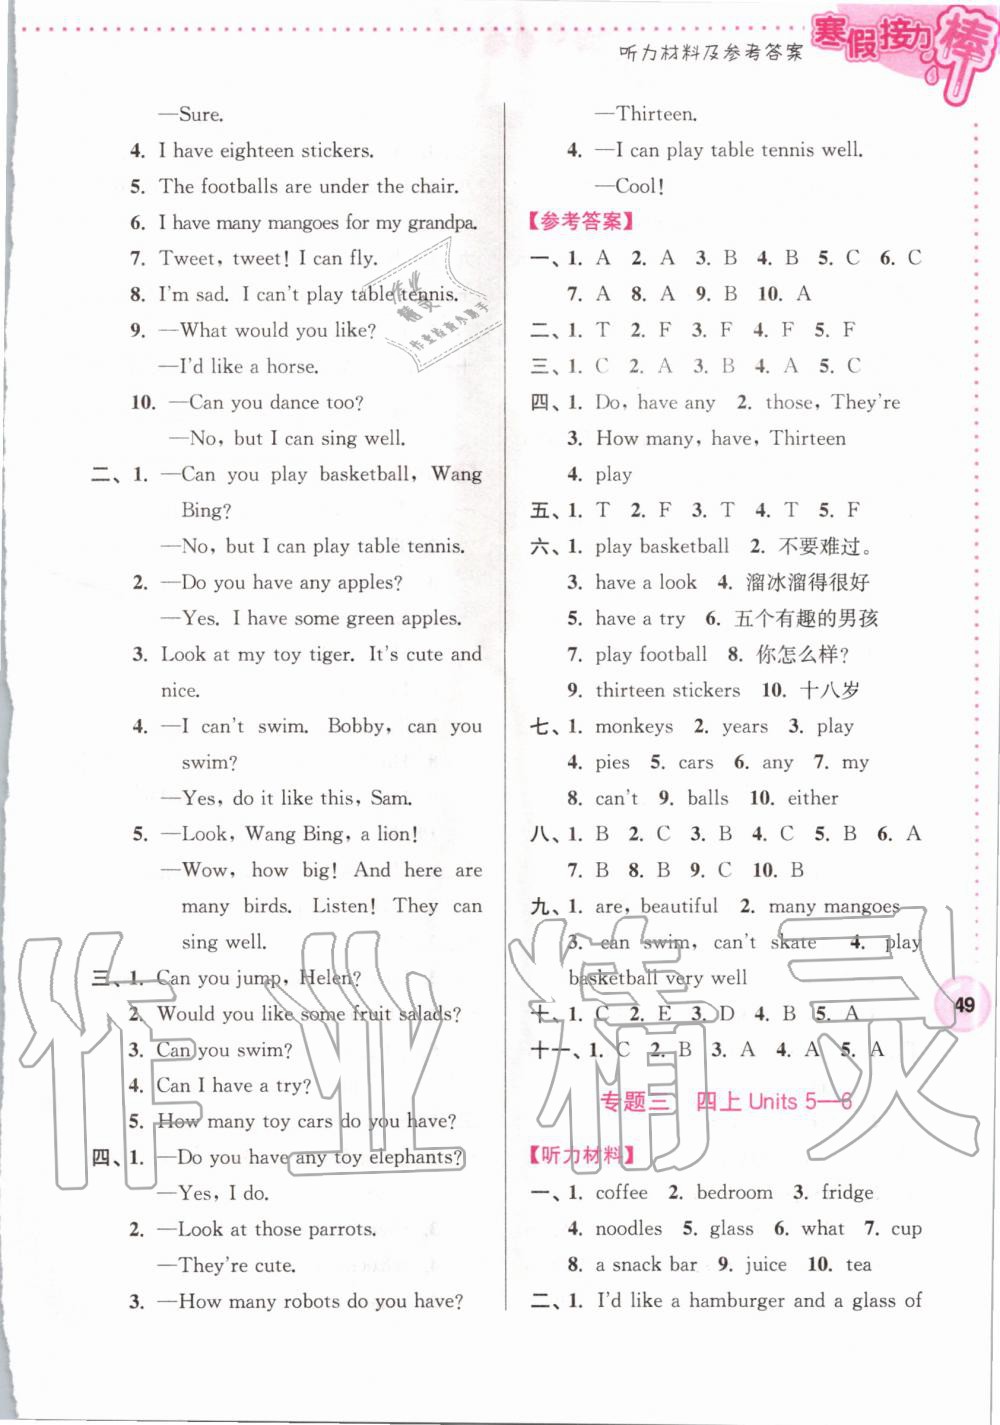 听力材料及参考答案
寒假接力棒
—Sure.
4. I have eighteen stickers.
5. The footballs are under the chair.
6. I have many mangoes for my grandpa.
7. Tweet, tweet! I can fly.
8. I'm sad. I can't play table tennis.
9. —What would you like?
—I'd like a horse.
10. —Can you dance too?
—No, but I can sing well.
二、1. —Can you play basketball, Wang
Bing?
—No, but I can play table tennis.
2. —Do you have any apples?
—Yes. I have some green apples.
3. Look at my toy tiger. It's cute and
nice.
4. —I can't swim. Bobby, can you
swim?
—Yes, do it like this, Sam.
5. —Look, Wang Bing, a lion!
—Wow, how big! And here are
many birds. Listen! They can
sing well.
三、1. Can you jump, Helen?
2. Would you like some fruit salads?
3. Can you swim?
4. Can I have a try?
5. How many toy cars do you have?
四、1. —Do you have any toy elephants?
—Yes, I do.
2. —Look at those parrots.
—They're cute.
3. —How many robots do you have?
—Thirteen.
4. —I can play table tennis well.
—Cool!
【参考答案】
一、1. A 2. A 3. B 4. B 5. C 6. C
7. A 8. A 9. B 10. A
二、1. T 2. F 3. F 4. F 5. F
三、1. C 2. A 3. B 4. A 5. C
四、1. Do, have any 2. those, They're
3. How many, have, Thirteen
4. play
五、1. T 2. F 3. T 4. T 5. F
六、1. play basketball 2. 不要难过。
3. have a look 4. 溜冰溜得很好
5. have a try 6. 五个有趣的男孩
7. play football 8. 你怎么样?
9. thirteen stickers 10. 十八岁
七、1. monkeys 2. years 3. play
4. pies 5. cars 6. any 7. my
8. can't 9. balls 10. either
八、1. B 2. C 3. B 4. C 5. B 6. A
7. B 8. B 9. C 10. B
九、1. are, beautiful 2. many mangoes
3. can swim, can't skate 4. play
basketball very well
十、1. C 2. E 3. D 4. B 5. A
十一、1. C 2. B 3. A 4. A 5. A
专题三 四上 Units 5—6
【听力材料】
一、1. coffee 2. bedroom 3. fridge
4. noodles 5. glass 6. what 7. cup
8. a snack bar 9. juice 10. tea
二、1. I'd like a hamburger and a glass of
49
作业精灵
作业
精灵
作业检查小助手